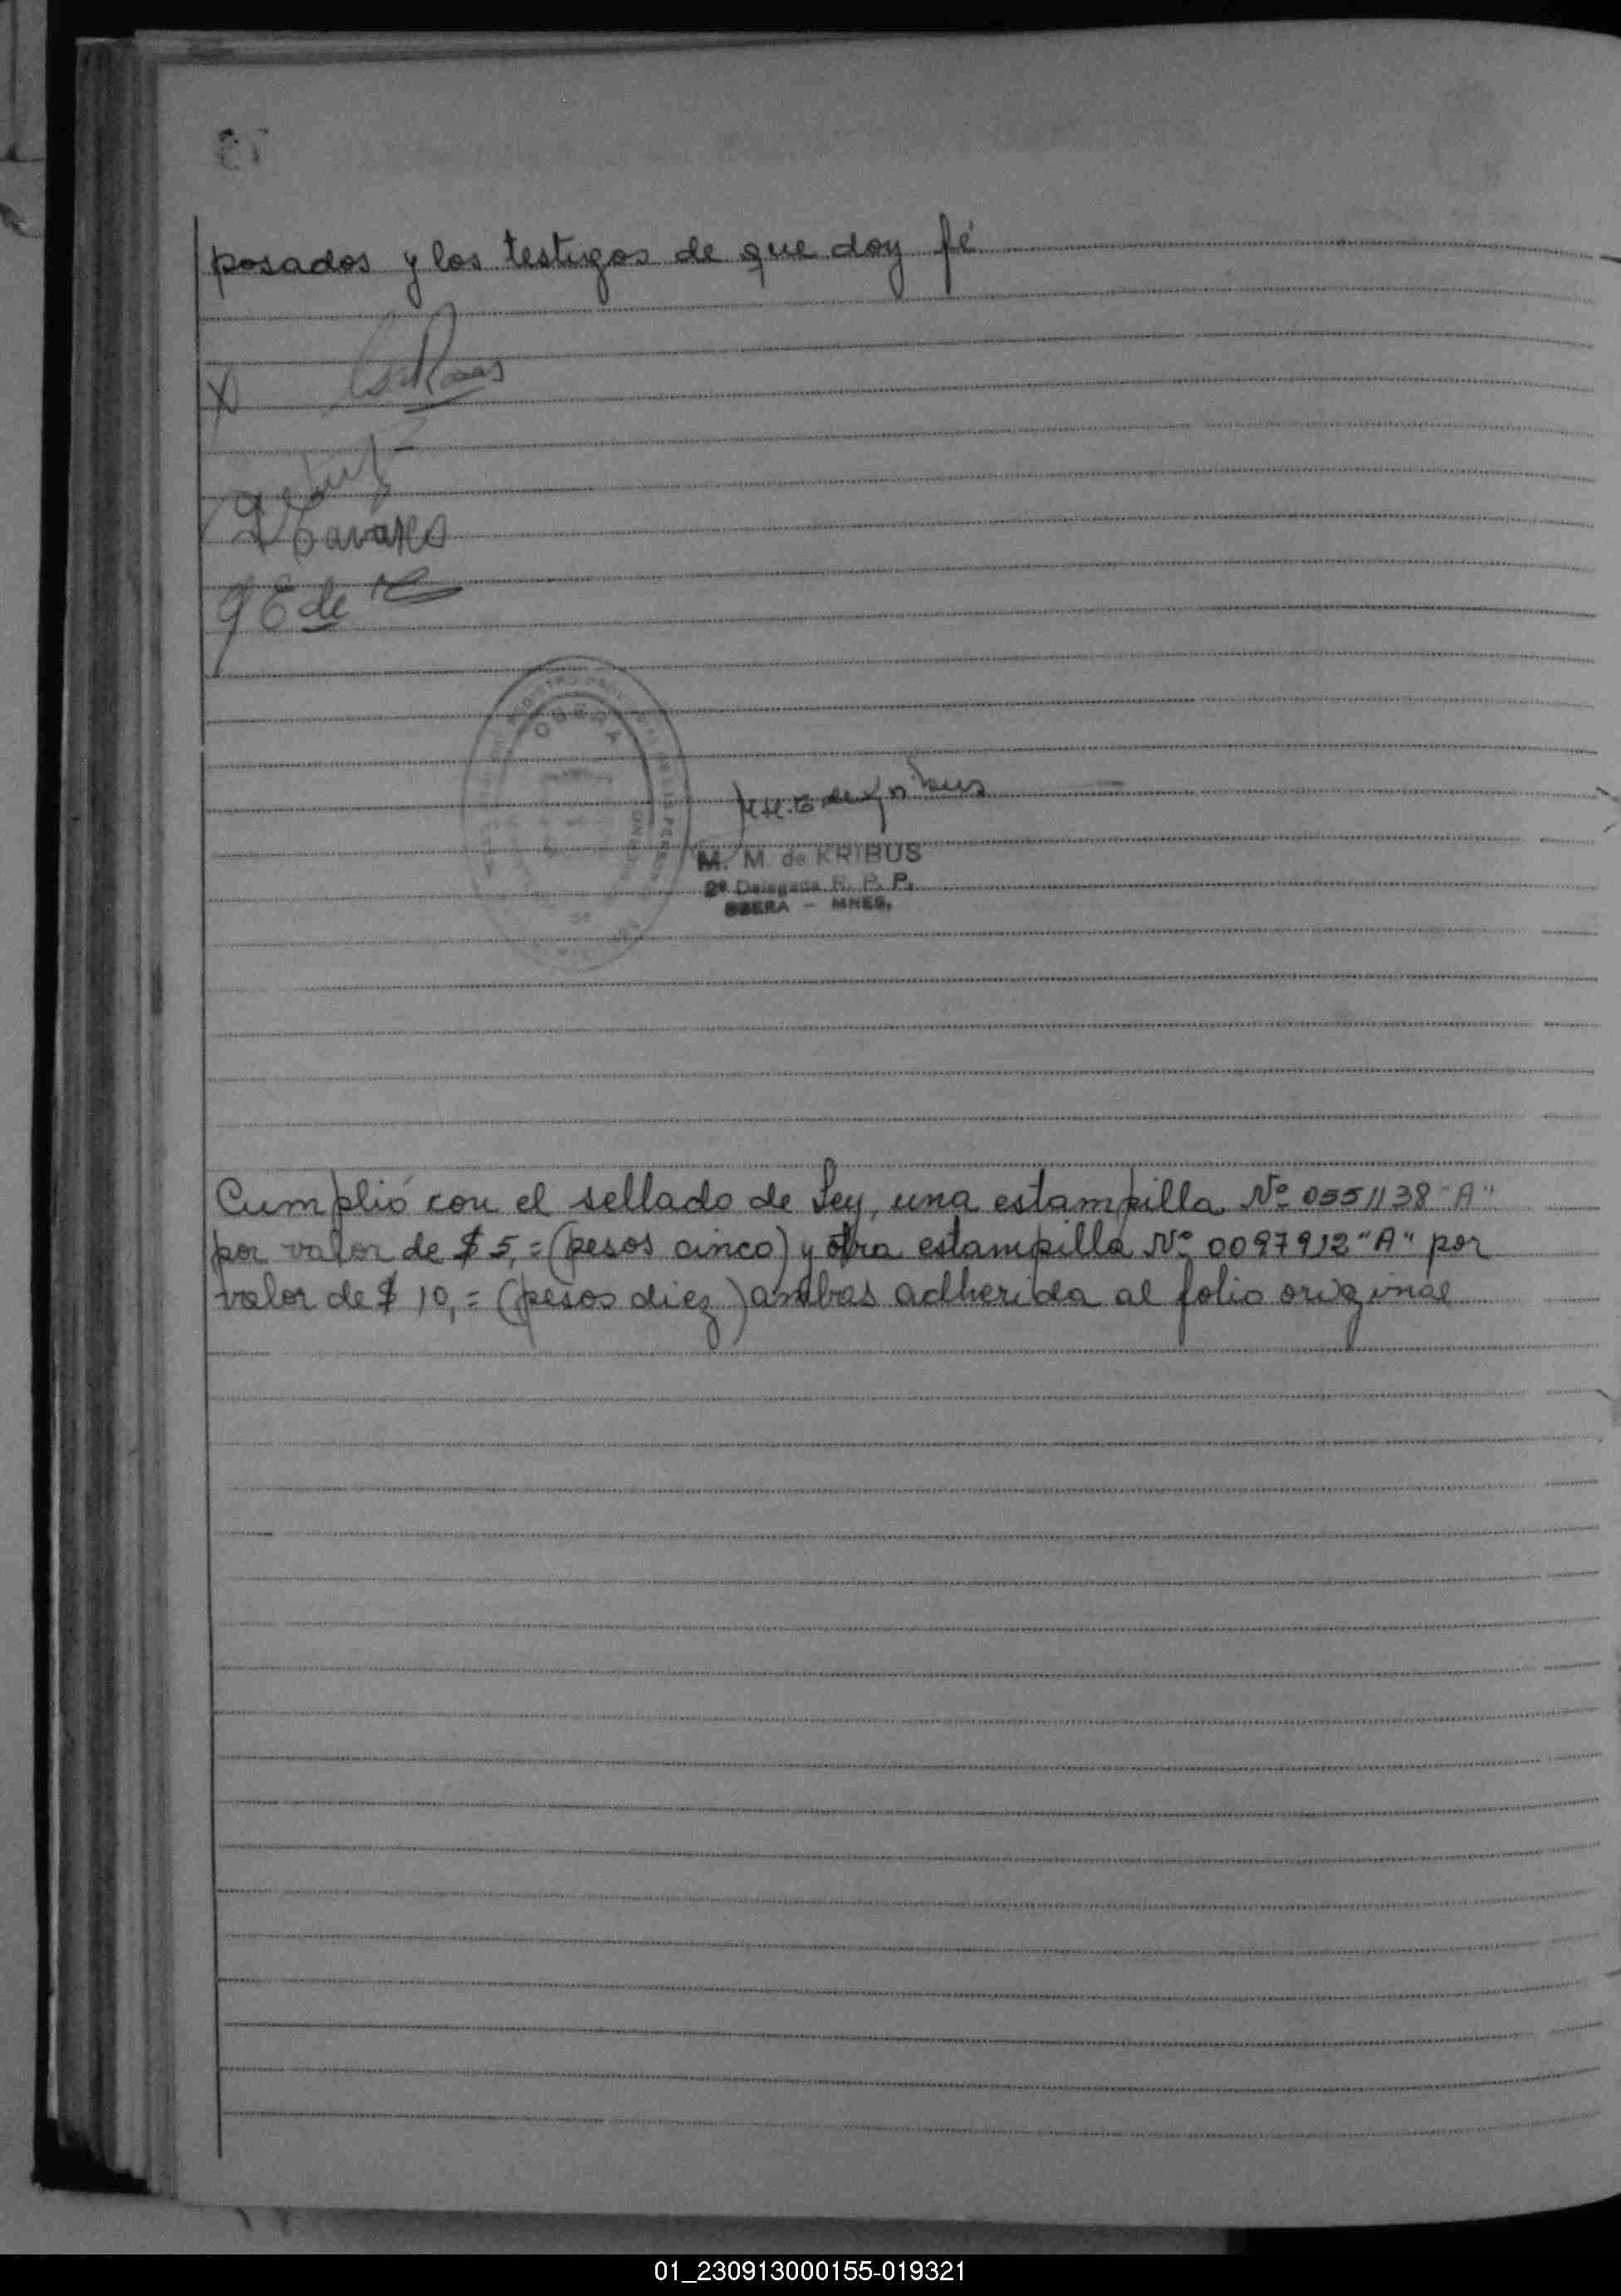 posados y los testigos de que doy fé
X
Tavares
de
OBERA
M. M. de KRIBUS
2ª Delegada R. P. P.
OBERA - MNES.
Cumplió con el sellado de Ley, una estampilla Nº 0551138 "A"
por valor de $ 5,= (pesos cinco) y otra estampilla Nº 0097912 "A" por
valor de $ 10,= (pesos diez) ambas adherida al folio original
01_230913000155-019321